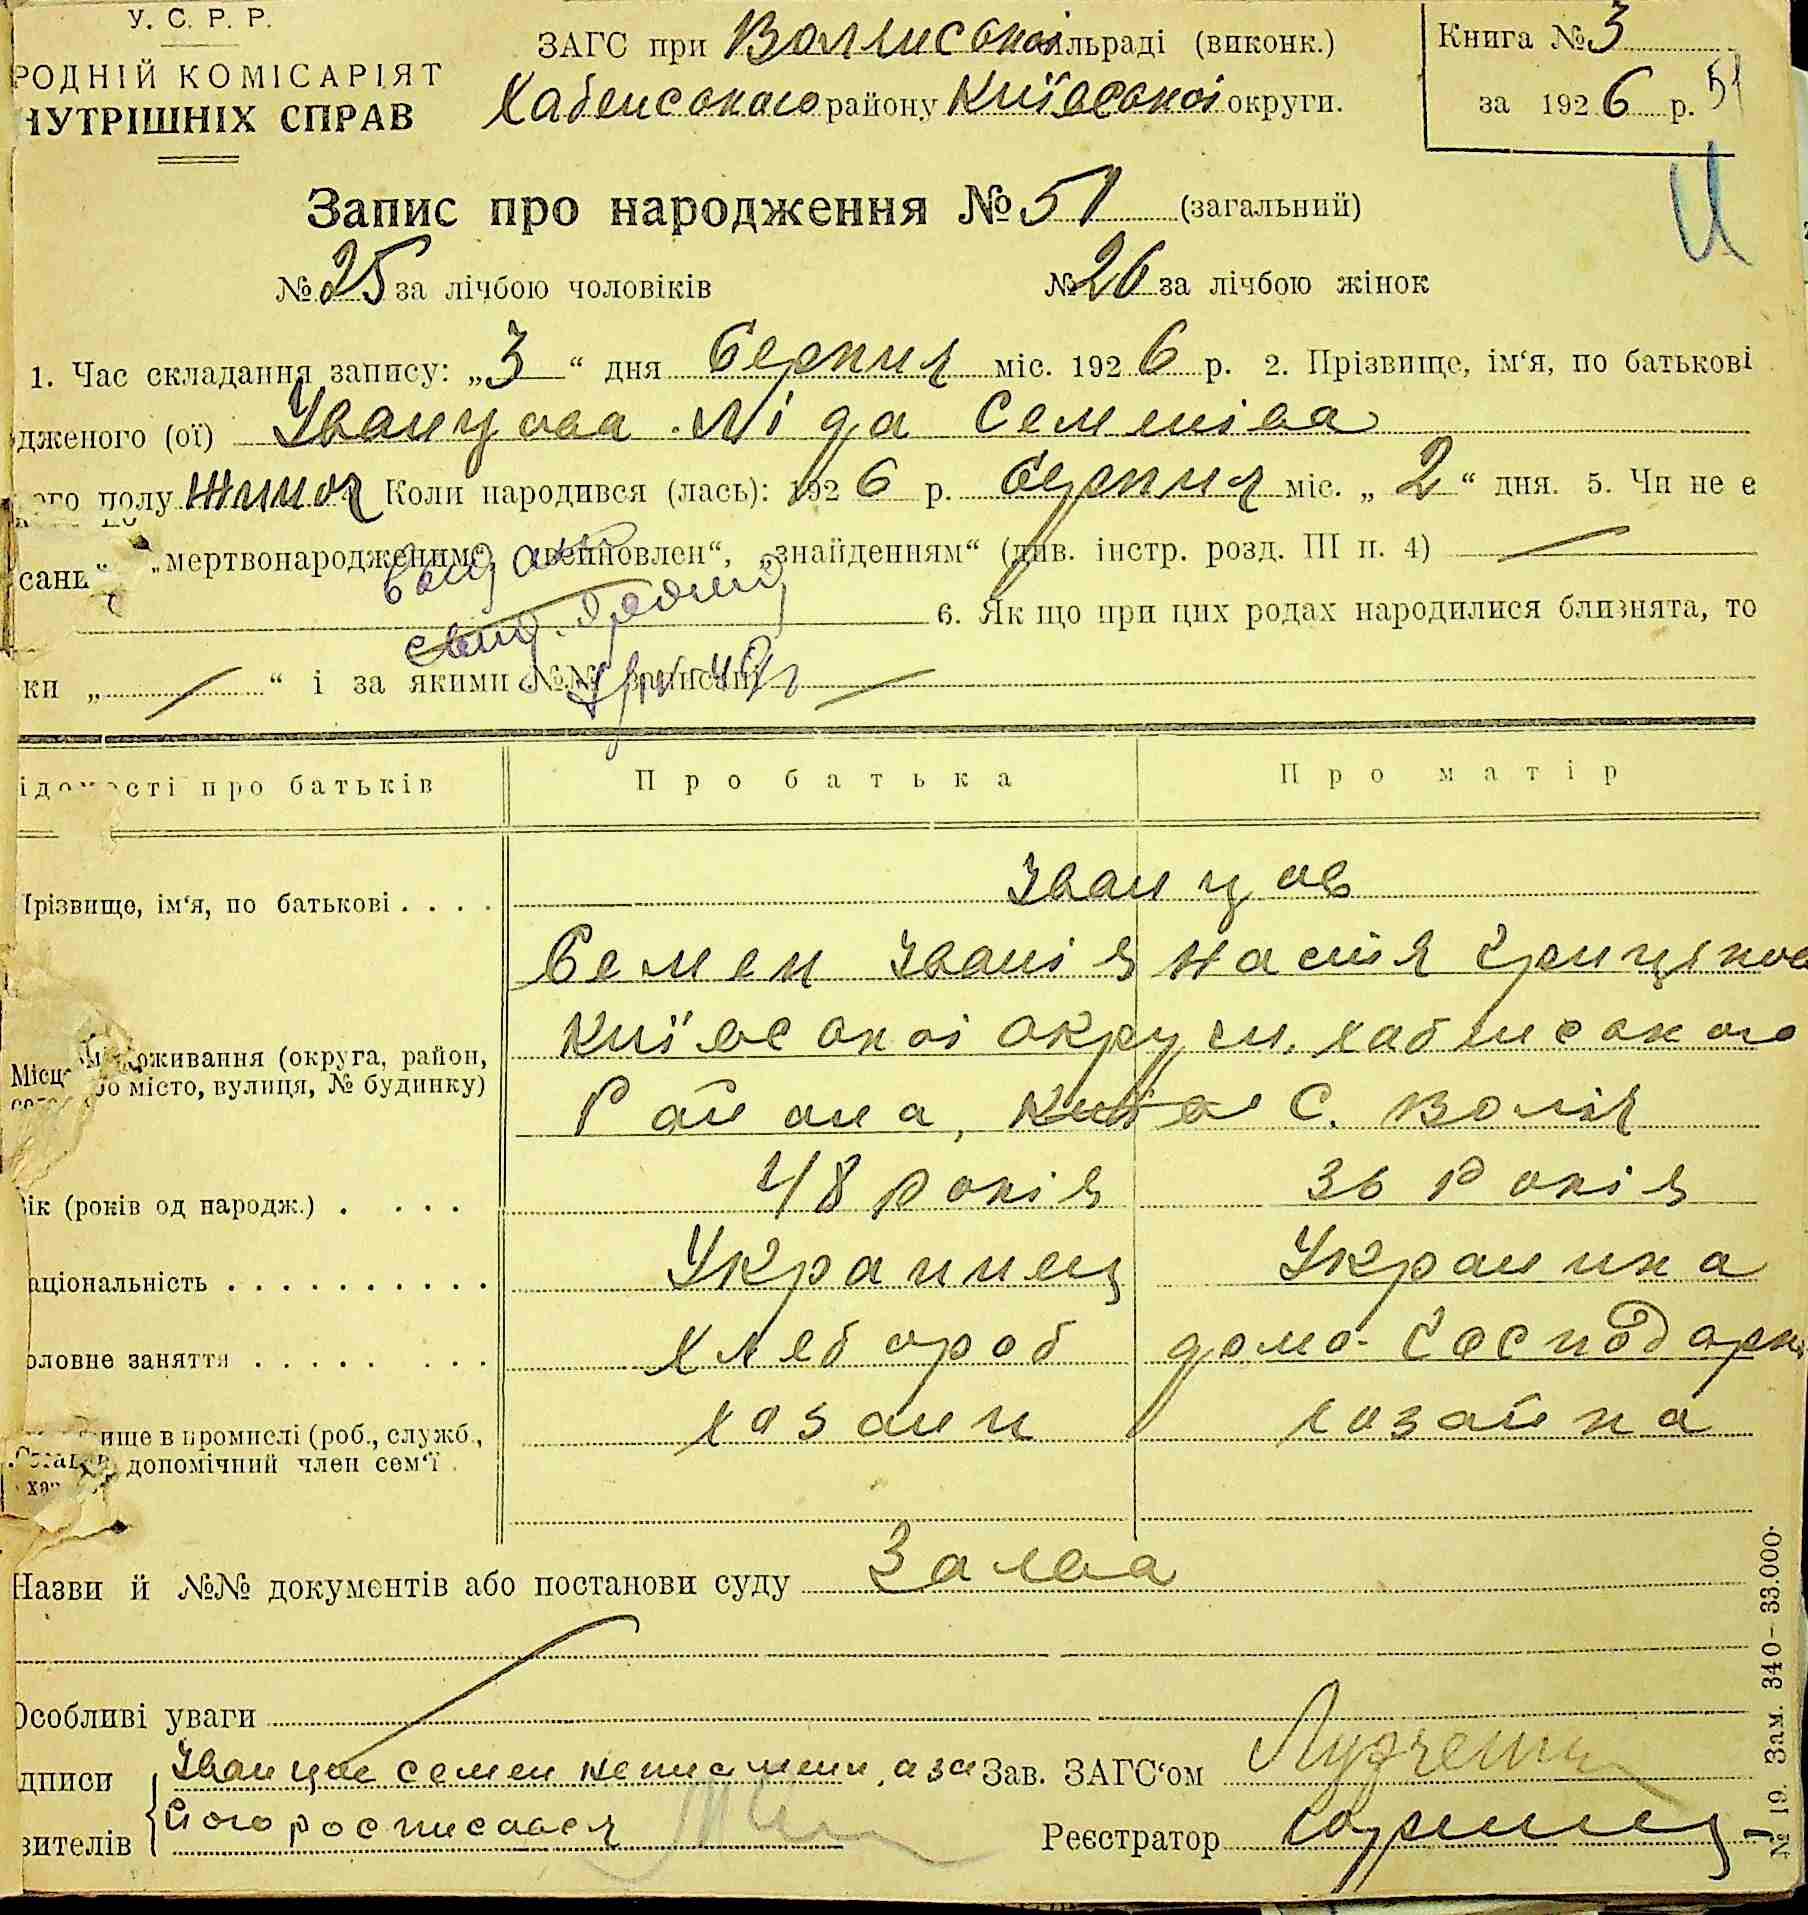 У. С. Р. Р.
РОДНІЙ КОМІСАРІЯТ
НУТРІШНІХ СПРАВ
ЗАГС при сільраді (виконк.)
Хабенського району Київської округи.
Книга № 3
за 1926 р. 51
Запис про народження № 51 (загальний)
№ 25 за лічбою чоловіків № 26 за лічбою жінок
1. Час складання запису: „3“ дня Серпня міс. 1926 р. 2. Прізвище, ім‘я, по батькові
дженого (ої) Іванцова Ліда Семеніва
ого полу жиноч Коли народився (лась): 1926 р. Серпня міс. „2“ дня. 5. Чи не є
сань“ „мертвонародженим“, „знайденням“ (див. інстр. розд. III п. 4) —
6. Як що при цих родах народилися близнята, то
ки „—“ і за якими №№ записані —
ідомості про батьків Про батька Про матір
Прізвище, ім‘я, по батькові . . . . Іванцов
Семен Іванів Настя Грицькова
Київської округи, Хабенського
Місце проживання (округа, район,
або місто, вулиця, № будинку) Району, С. Волія
Вік (років од народж.) . . . . 48 Років 36 Років
аціональність . . . . . . . . . . Украинец Украинка
оловне заняття . . . . . . . . Хлебороб домо-Господарка
ище в промислі (роб., служб., хазаин хазайка
допомічний член сем‘ї
Назви й №№ документів або постанови суду Заява
Особливі уваги
дписи Іванцов семен неписьмен, а за Зав. ЗАГС‘ом
вителів його росписався Реєстратор
№ 19. Зам. 340—33.000.